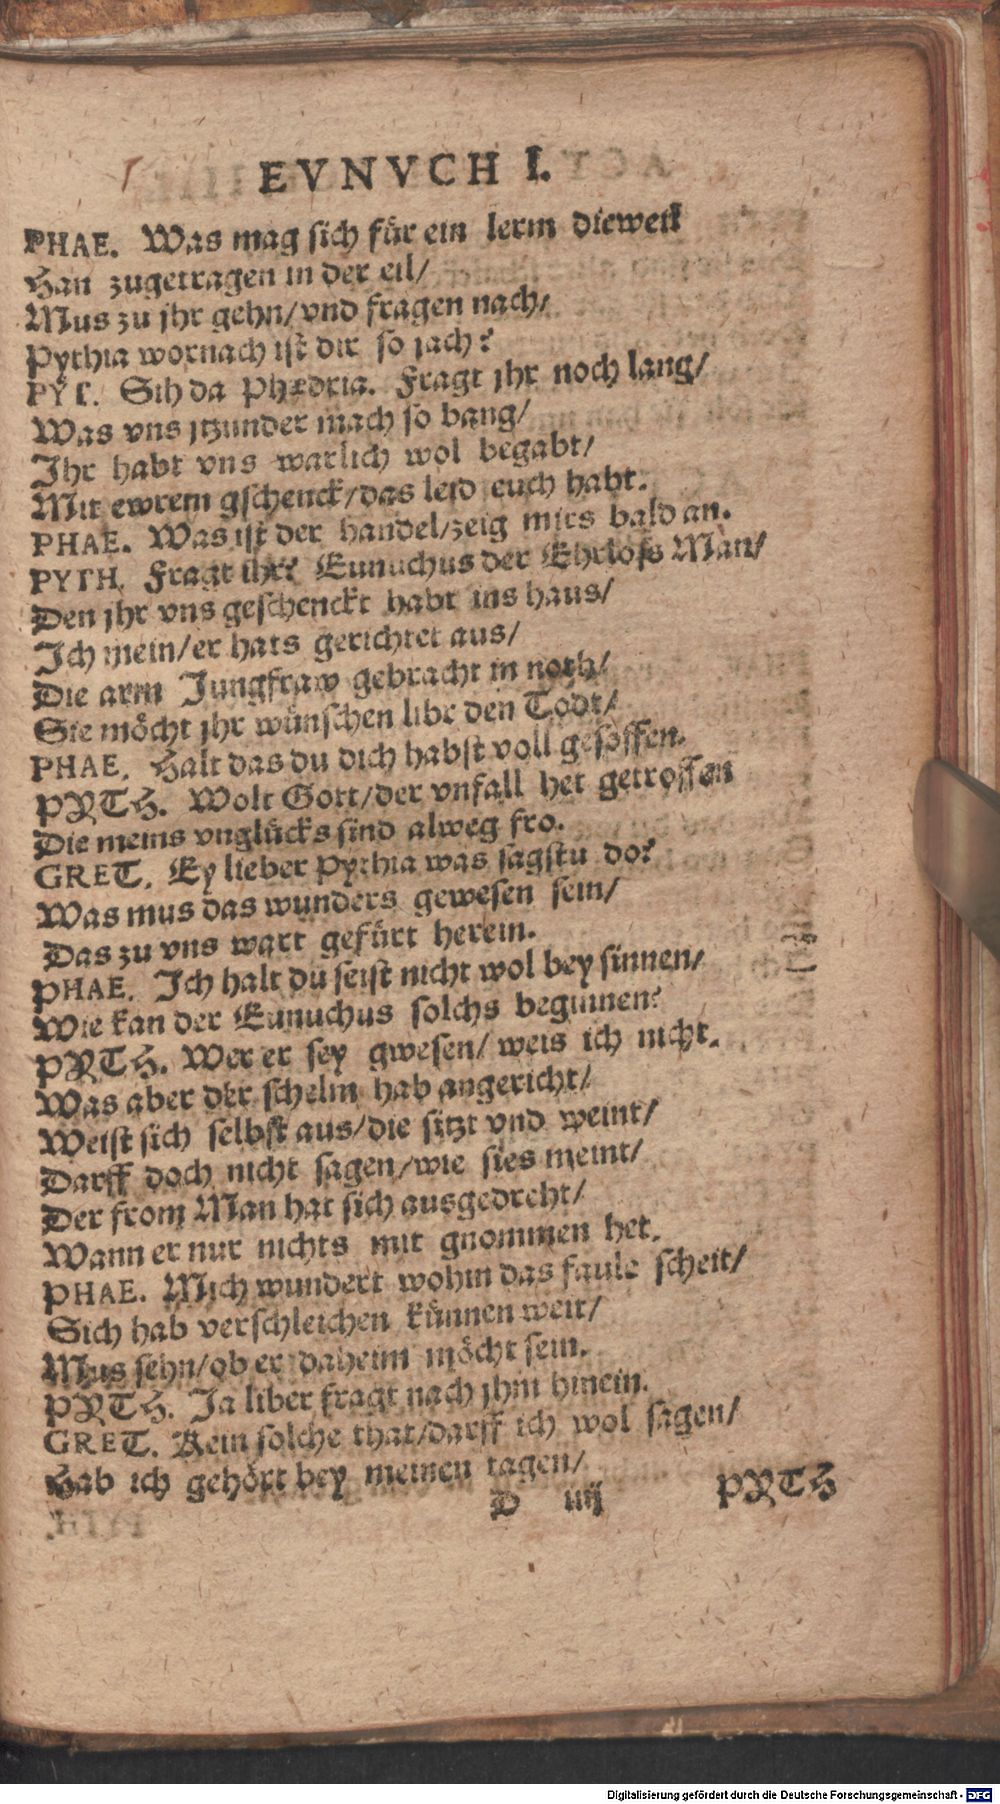 EVNVCH I.
PHAE. Was mag sich für ein lerm dieweil
Han zugetragen in der eil/
Mus zu jhr gehn/vnd fragen nach/
Pythia wornach ist dir so jach?
PYT. Sih da Phædria. Fragt jhr noch lang/
Was vns jtzunder mach so bang/
Ihr habt vns warlich wol begabt/
Mit ewrem gschenck/das leid euch habt.
PHAE. Was ist der handel/zeig mirs bald an.
PYTH. Fragt ihr? Eunuchus der Ehrloss Man/
Den jhr vns geschenckt habt ins haus/
Ich mein/er hats gerichtet aus/
Die arm Jungfraw gebracht in noth/
Sie möcht jhr wünschen libr den Todt/
PHAE. Halt das du dich habst voll gesoffen.
PYTH. Wolt Gott/der vnfall het getroffen
Die meins vnglücks sind alweg fro.
GRET. Ey lieber Pythia was sagstu do?
Was mus das wunders gewesen sein/
Das zu vns wart gefürt herein.
PHAE. Ich halt du seist nicht wol bey sinnen/
Wie kan der Eunuchus solchs beginnen?
PYTH. Wer er sey gwesen/ weis ich nicht.
Was aber der schelm hab angericht/
Weist sich selbst aus/die sitzt vnd weint/
Darff doch nicht sagen/wie sies meint/
Der from Man hat sich ausgedreht/
Wann er nur nichts mit gnommen het.
PHAE. Mich wundert wohin das faule scheit/
Sich hab verschleichen künnen weit/
Mus sehn/ob er daheim möcht sein.
PYTH. Ja liber fragt nach jhm hinein.
GRET. Kein solche that/darff ich wol sagen/
Hab ich gehört bey meinen tagen/
D iiij PYTH
Digitalisierung gefördert durch die Deutsche Forschungsgemeinschaft - DFG